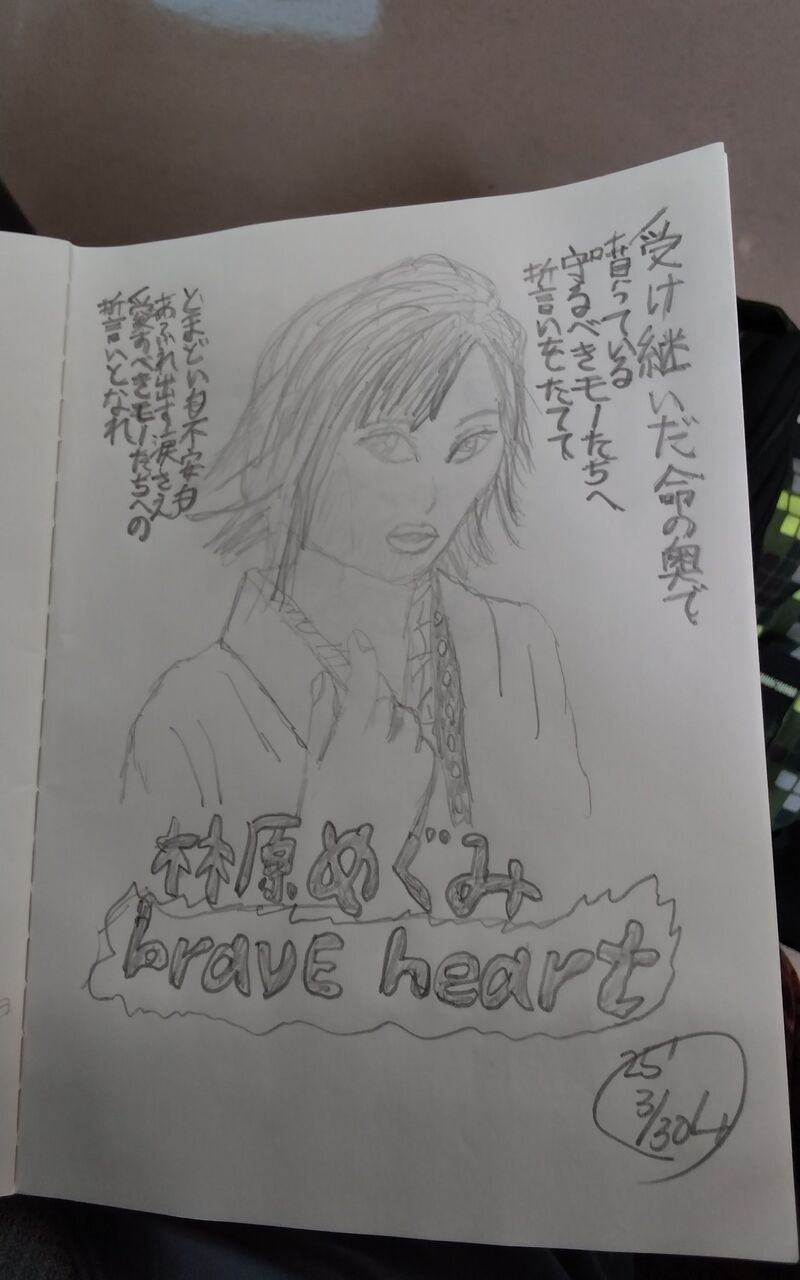 受け継いだ命の奥で
っている
守るべきモノたちへ
誓いをたてて
とまどいも不安も
あふれ出す涙さえ
愛すべきモノたちへの
誓いとなれ
林原めぐみ
bravE heart
25'
3/30